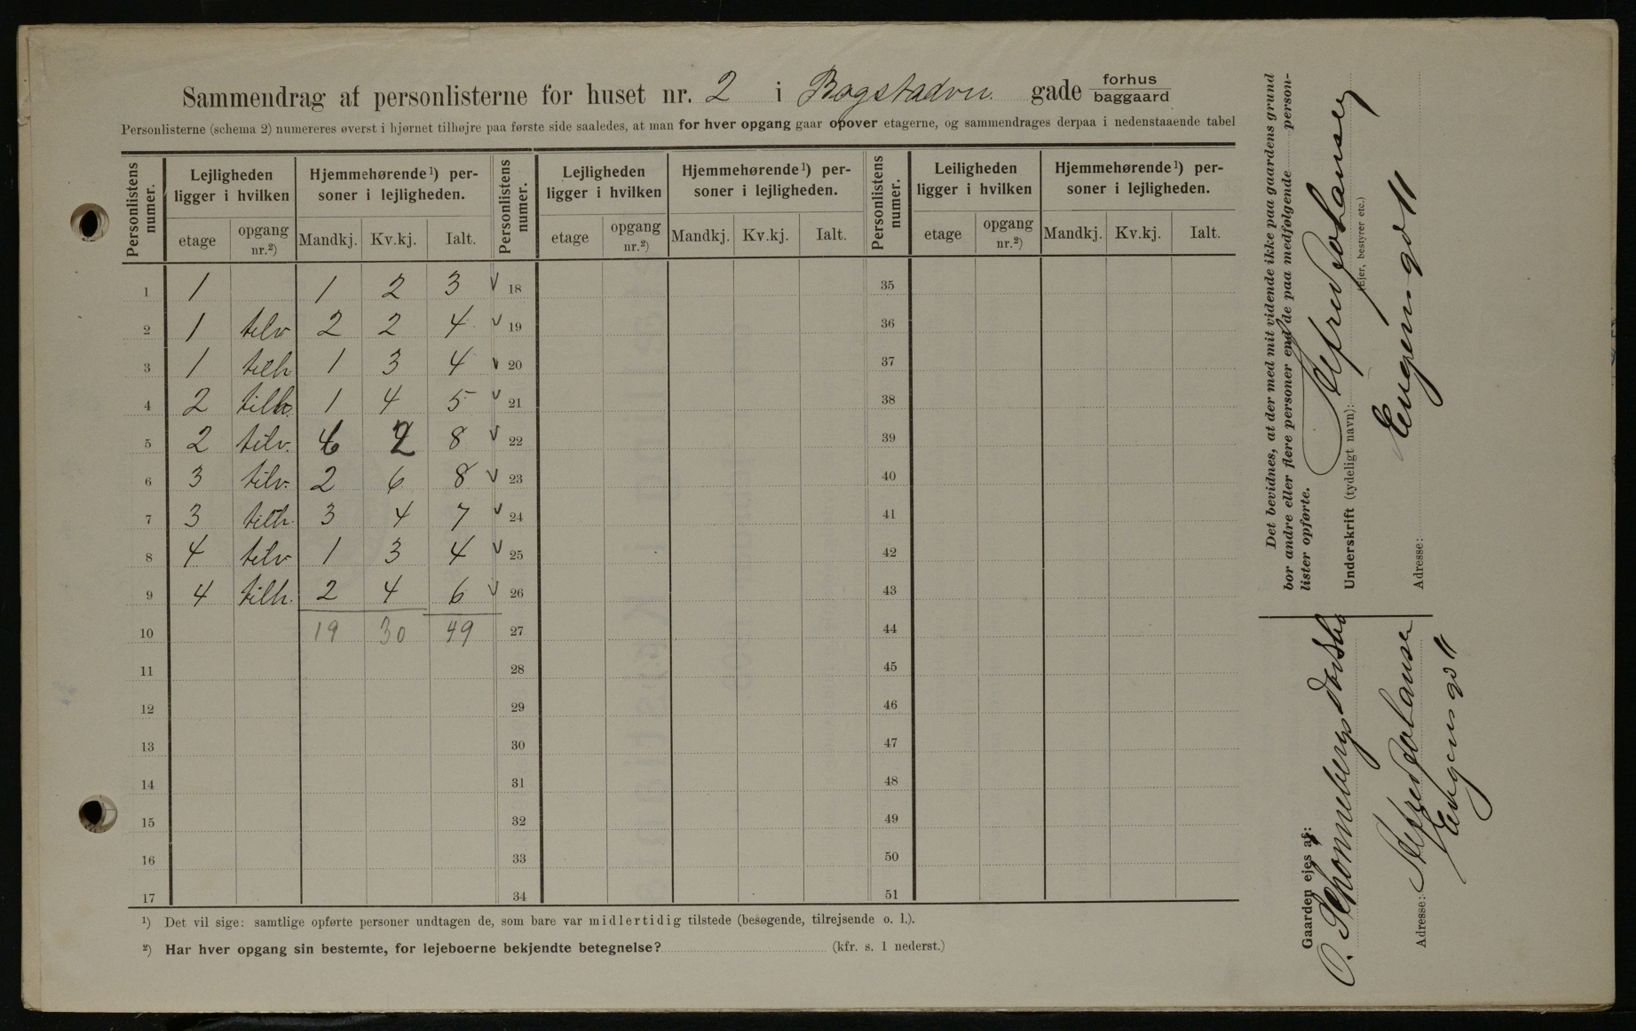 Sammendrag af personlisterne for huset nr. 2 i Bogstadvn. gade forhus baggaard
Personlisterne (schema 2) numereres øverst i hjørnet tilhøjre paa første side saaledes, at man for hver opgang gaar opover etagerne, og sammendrages derpaa i nedenstaaende tabel
Personlistens numer. Lejligheden ligger i hvilken Hjemmehørende¹) personer i lejligheden. Personlistens numer. Lejligheden ligger i hvilken Hjemmehørende¹) personer i lejligheden. Personlistens numer. Leiligheden ligger i hvilken Hjemmehørende¹) personer i lejligheden.
etage opgang nr.²) Mandkj. Kv.kj. Ialt. etage opgang nr.²) Mandkj. Kv.kj. Ialt. etage opgang nr.²) Mandkj. Kv.kj. Ialt.
1 1 1 2 3 v 18 35
2 1 tilv 2 2 4 v 19 36
3 1 tilh 1 3 4 v 20 37
4 2 tilh. 1 4 5 v 21 38
5 2 tilv. 6 2 8 v 22 39
6 3 tilv. 2 6 8 v 23 40
7 3 tilh. 3 4 7 v 24 41
8 4 tilv 1 3 4 v 25 42
9 4 tilh. 2 4 6 v 26 43
10 19 30 49 27 44
11 28 45
12 29 46
13 30 47
14 31 48
15 32 49
16 33 50
17 34 51
¹) Det vil sige: samtlige opførte personer undtagen de, som bare var midlertidig tilstede (besøgende, tilrejsende o. l.).
²) Har hver opgang sin bestemte, for lejeboerne bekjendte betegnelse? (kfr. s. 1 nederst.)
Det bevidnes, at der med mit vidende ikke paa gaardens grund
bor andre eller flere personer end de paa medfølgende person-
lister opførte.
Underskrift (tydeligt navn): Alfred Johansen
(Ejer, bestyrer etc.)
Adresse: Eugeniagd 11
Gaarden ejes af:
O. Schønnebergs Dødsbo
Adresse: Alfred Johansen
Eugeniagd 11